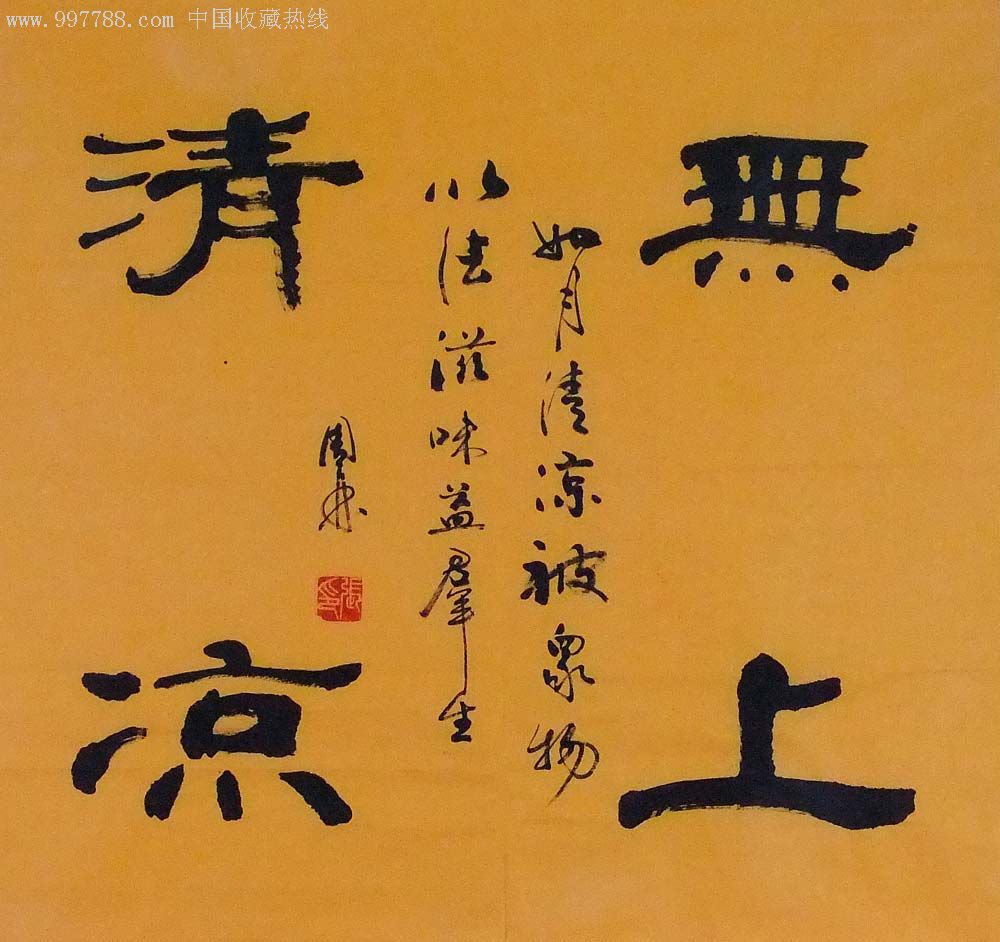 www.997788.com 中国收藏热线
無上
清凉
如月清凉被衆物
以法滋味益羣生
張印